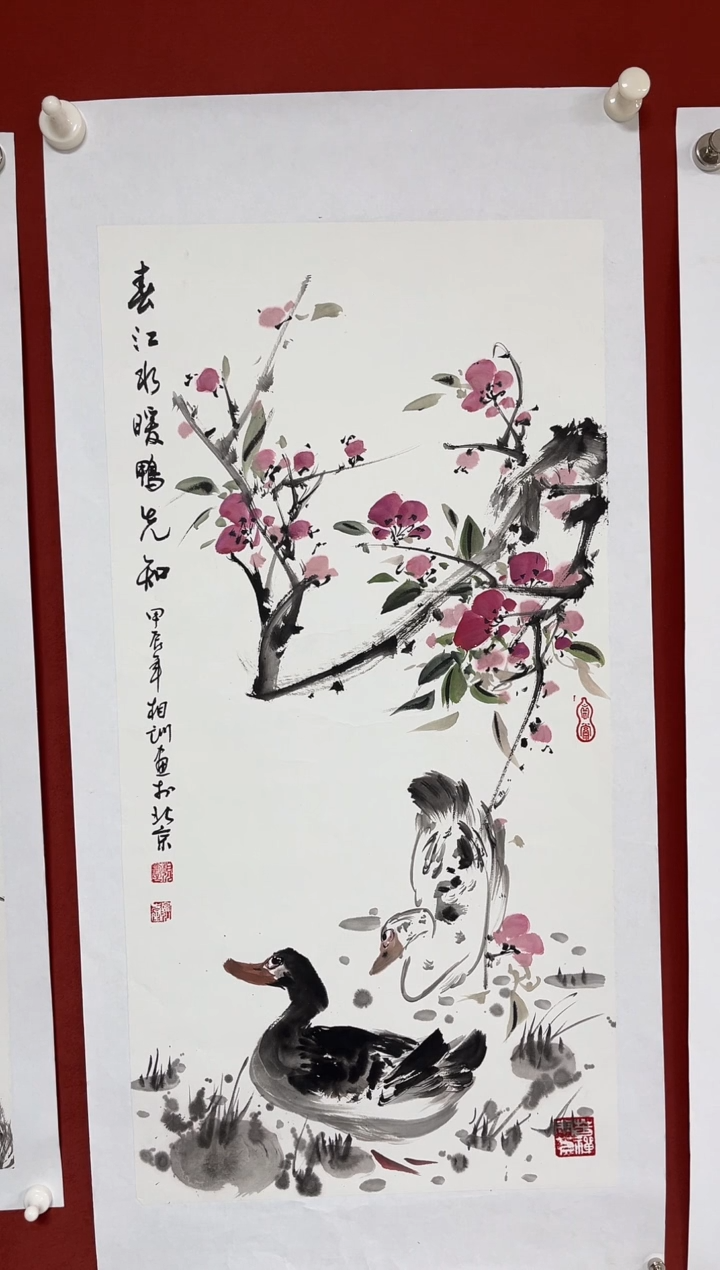 春江水暖鸭先知
甲辰年相训画於北京